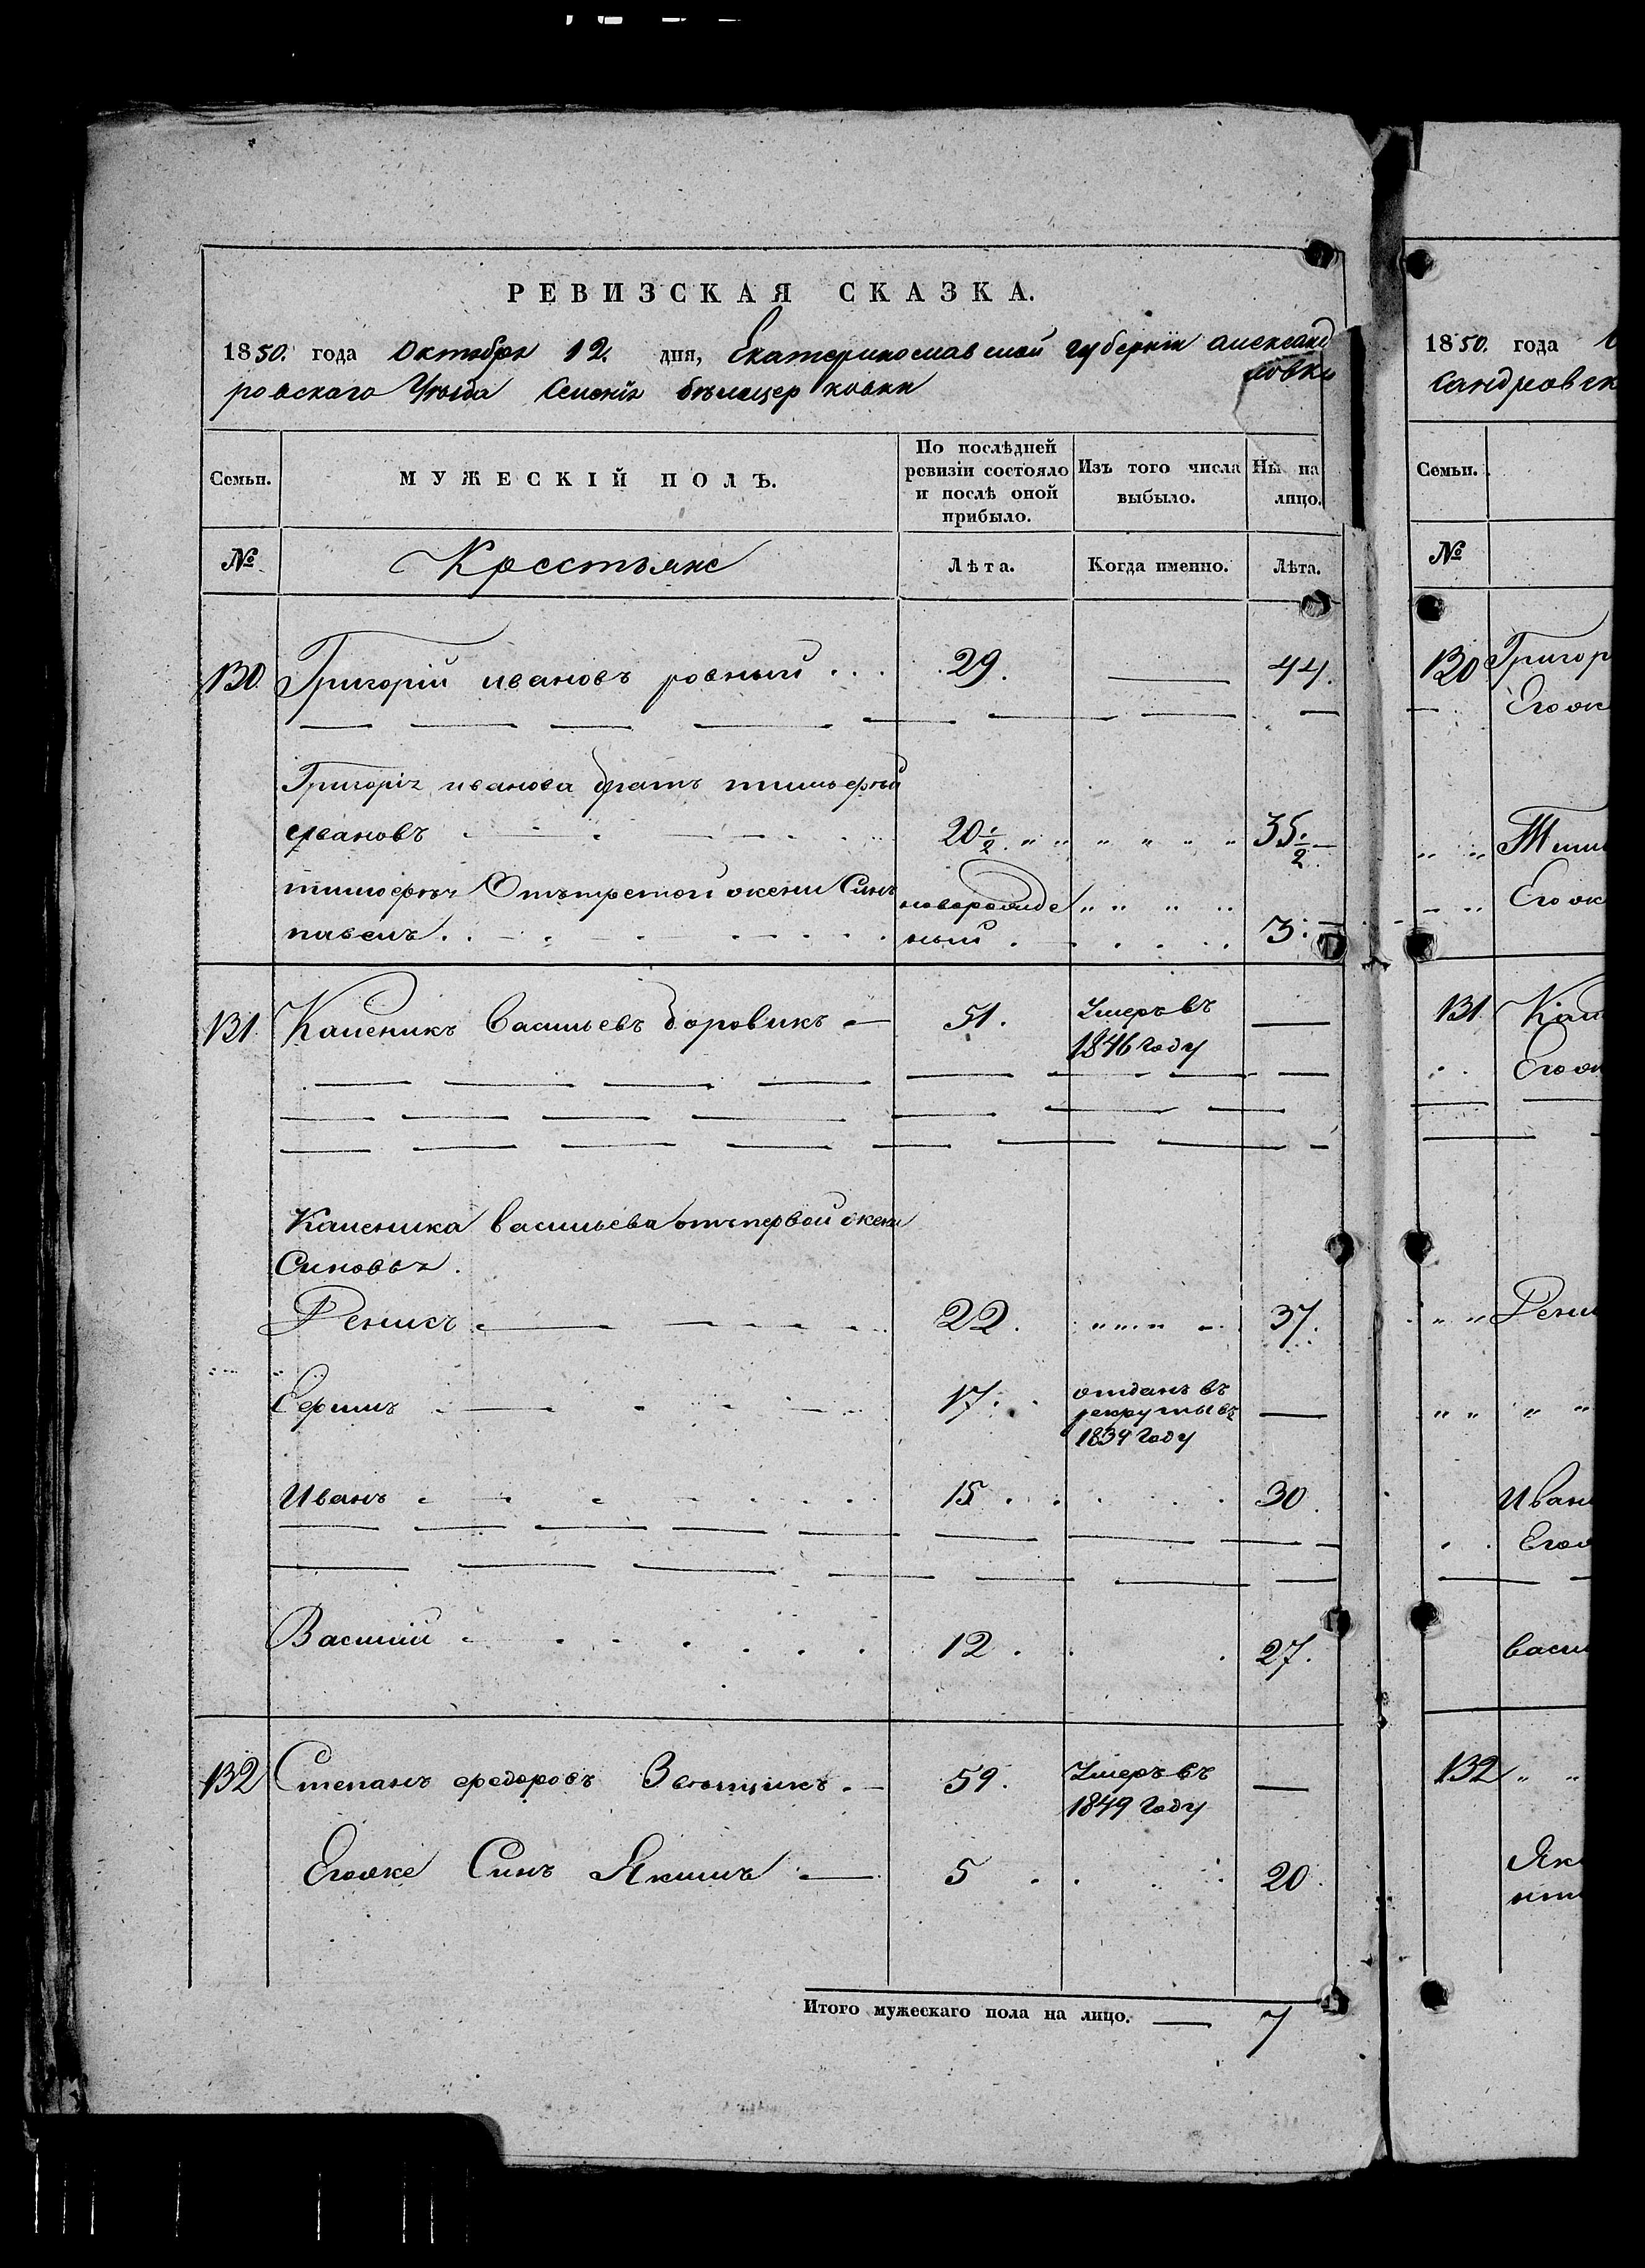 РЕВИЗСКАЯ СКАЗКА.
1850. года Октября 12. дня, Екатеринославской губернiи александ
ровскаго Уѣзда Селенiя бѣлоцерковки
МУЖЕСКIЙ ПОЛЪ.
Семьи.
По послѣдней ревизiи состояло и послѣ оной прибыло.
Изъ того числа выбыло.
Ны на лицо.
№
Крестьяне
Лѣта.
Когда именно.
Лѣта.
130 Григорiй ивановъ ровный . . . 29. — 44.
Григорiя иванова братъ тимоѳей
ивановъ 20½. " " " " " " 35½
тимоѳея Отътретой жени Синъ новорожде " " " "
павелъ. ный 3.
131 Каленикъ Васильевъ боровикъ — 51. Умеръ въ —
1846 году
Каленика васильева отъпервой жени
Синовья.
Деникъ 22. " " " " 37.
Еѳимъ 17. отданъ въ —
рекруты въ
1839 году
Иванъ 15 30.
Василий 12. 27.
132 Степанъ ѳедоровъ 59. Умеръ въ —
1849 году
Егоже Синъ Якимъ — 5 20.
Итого мужескаго пола на лицо. — 7
1850. года
сандровск
Семьи.
№
130 Григор
Егож
" " Тимо
Егож
131 Кал
Егож
" " Дени
" " " "
Иван
Егож
васи
132 " "
Яки